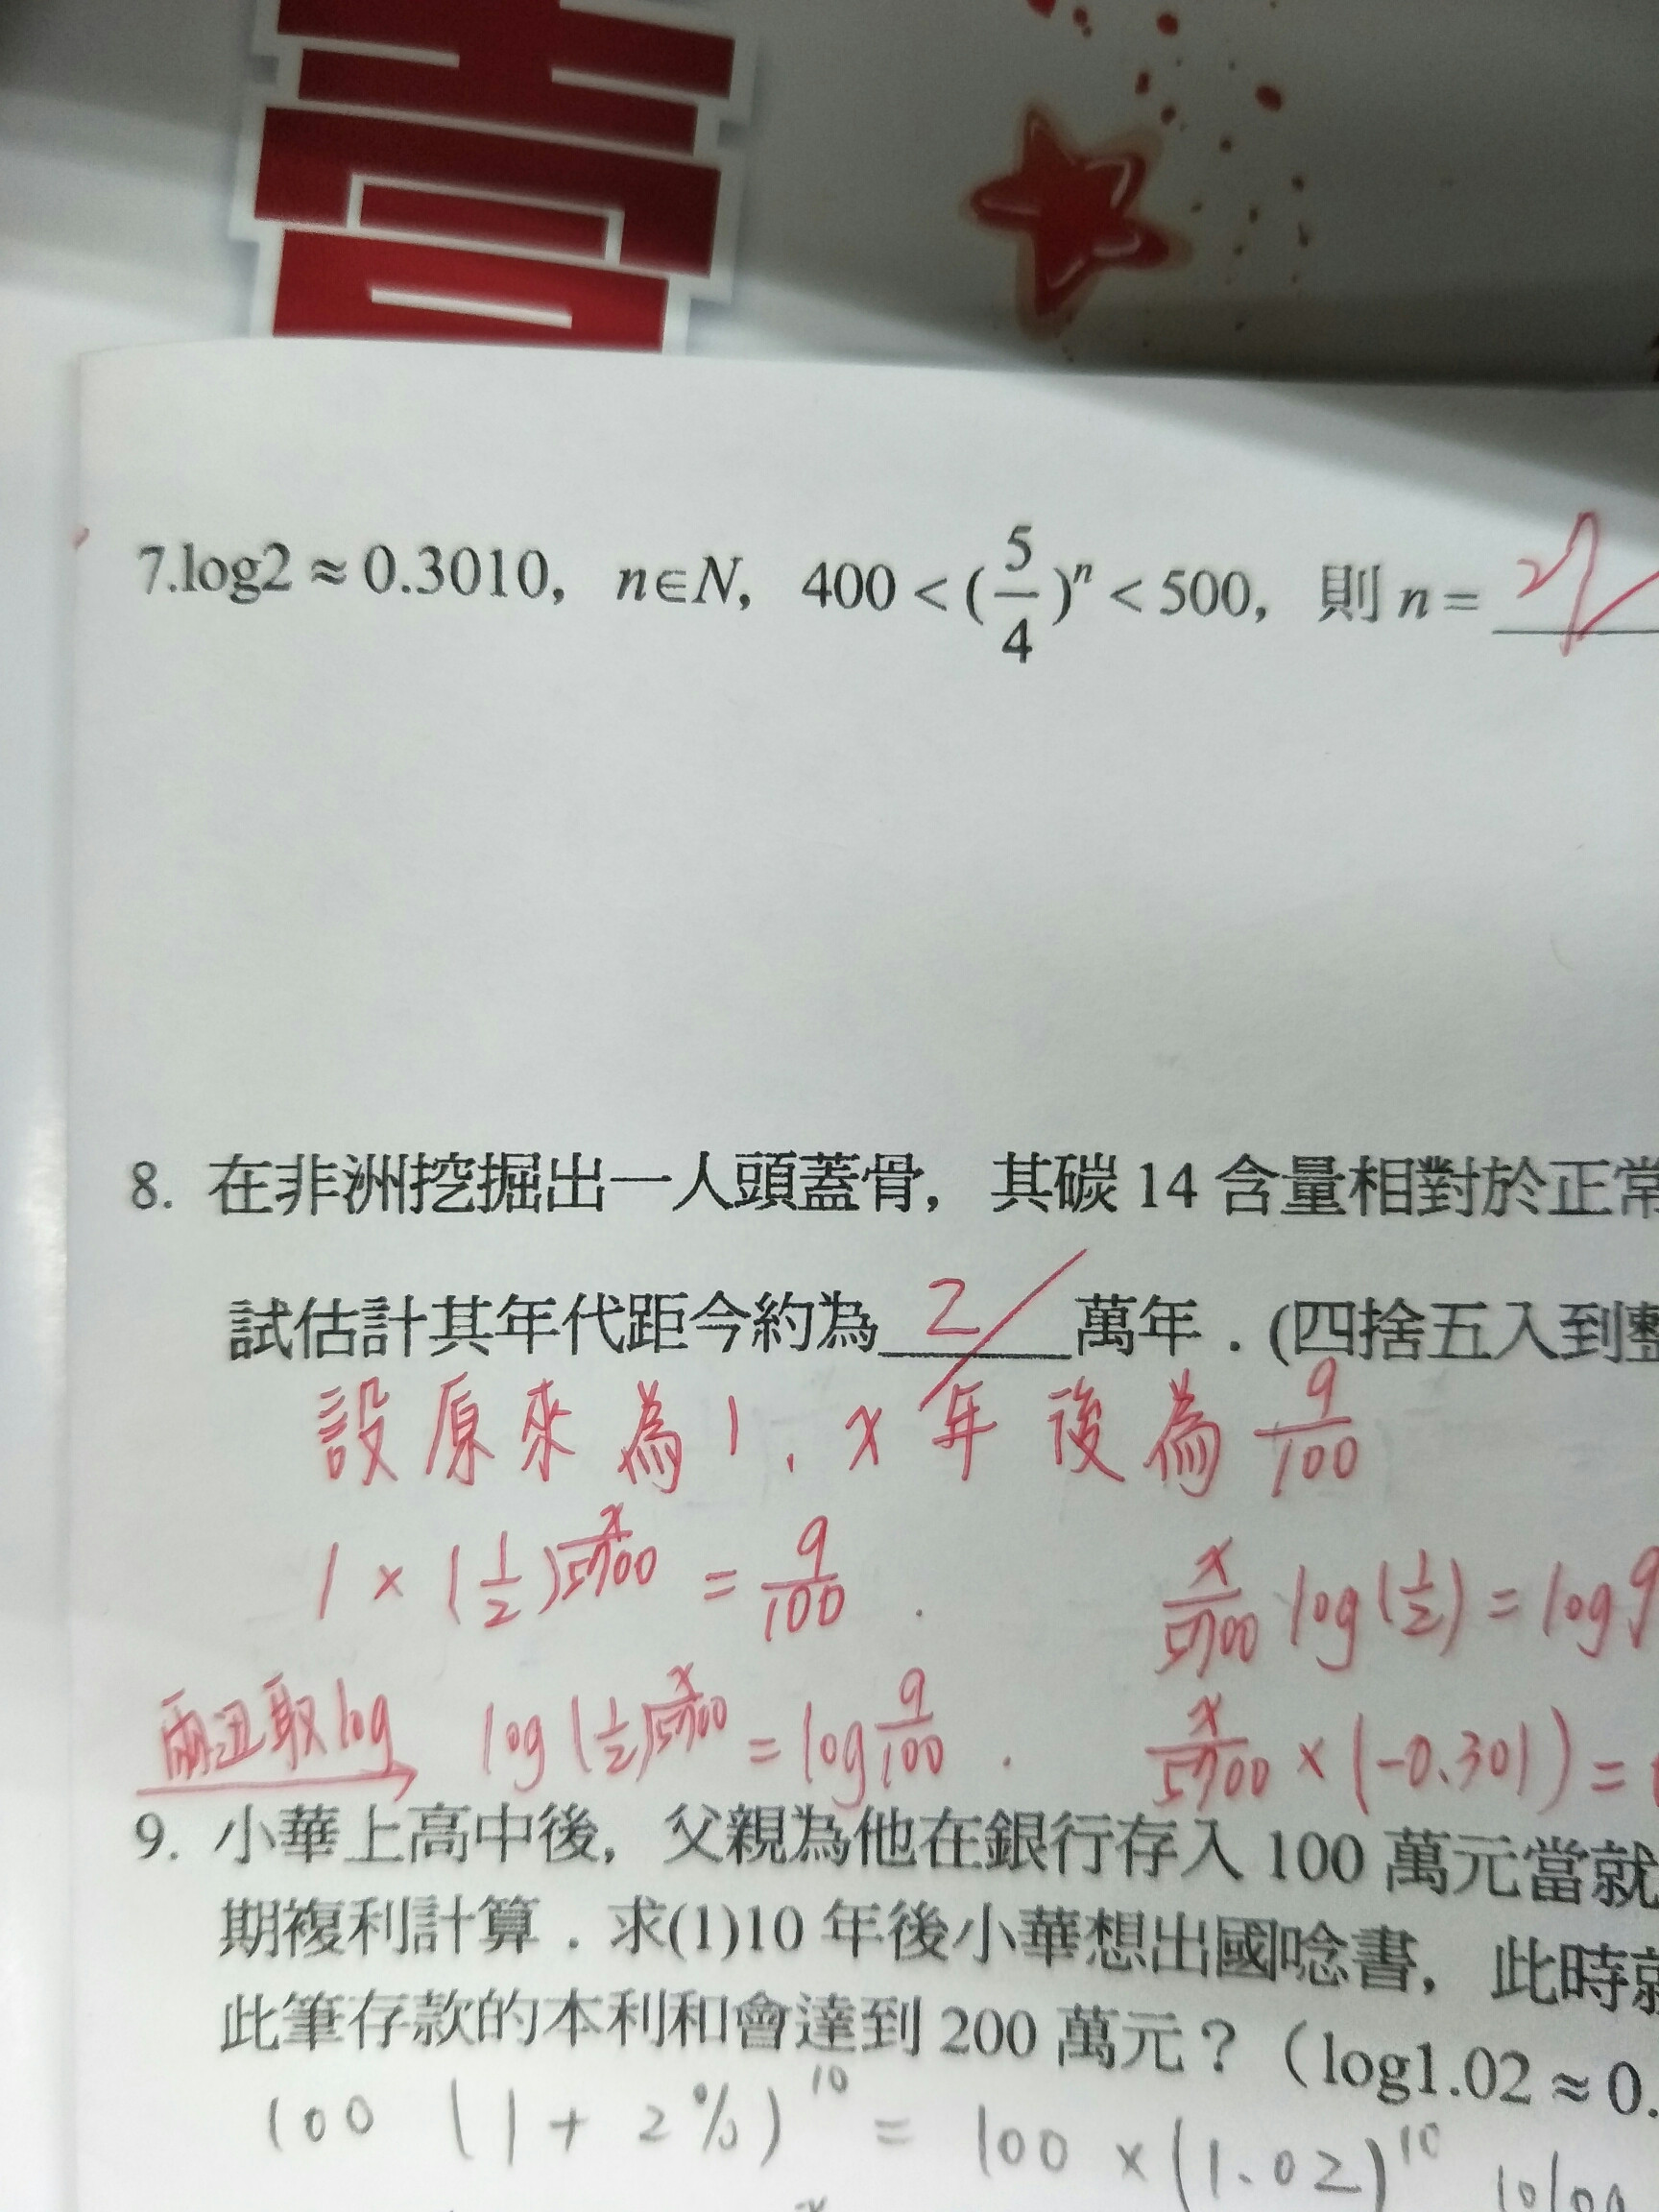 7.log2 ≈ 0.3010, n∈N, 400 < (5/4)^n < 500, 則 n =
8. 在非洲挖掘出一人頭蓋骨, 其碳 14 含量相對於正常
試估計其年代距今約為 2 萬年 . (四捨五入到整
設原來為1, x年後為 9/100
1 × (1/2)^(x/5700) = 9/100 .
x/5700 log(1/2) = log 9
兩邊取log log(1/2)^(x/5700) = log 9/100 .
x/5700 × (-0.301) =
9. 小華上高中後, 父親為他在銀行存入 100 萬元當就
期複利計算 . 求(1)10 年後小華想出國唸書, 此時
此筆存款的本利和會達到 200 萬元? (log1.02 ≈ 0.
100 (1 + 2%)^10 = 100 × (1.02)^10